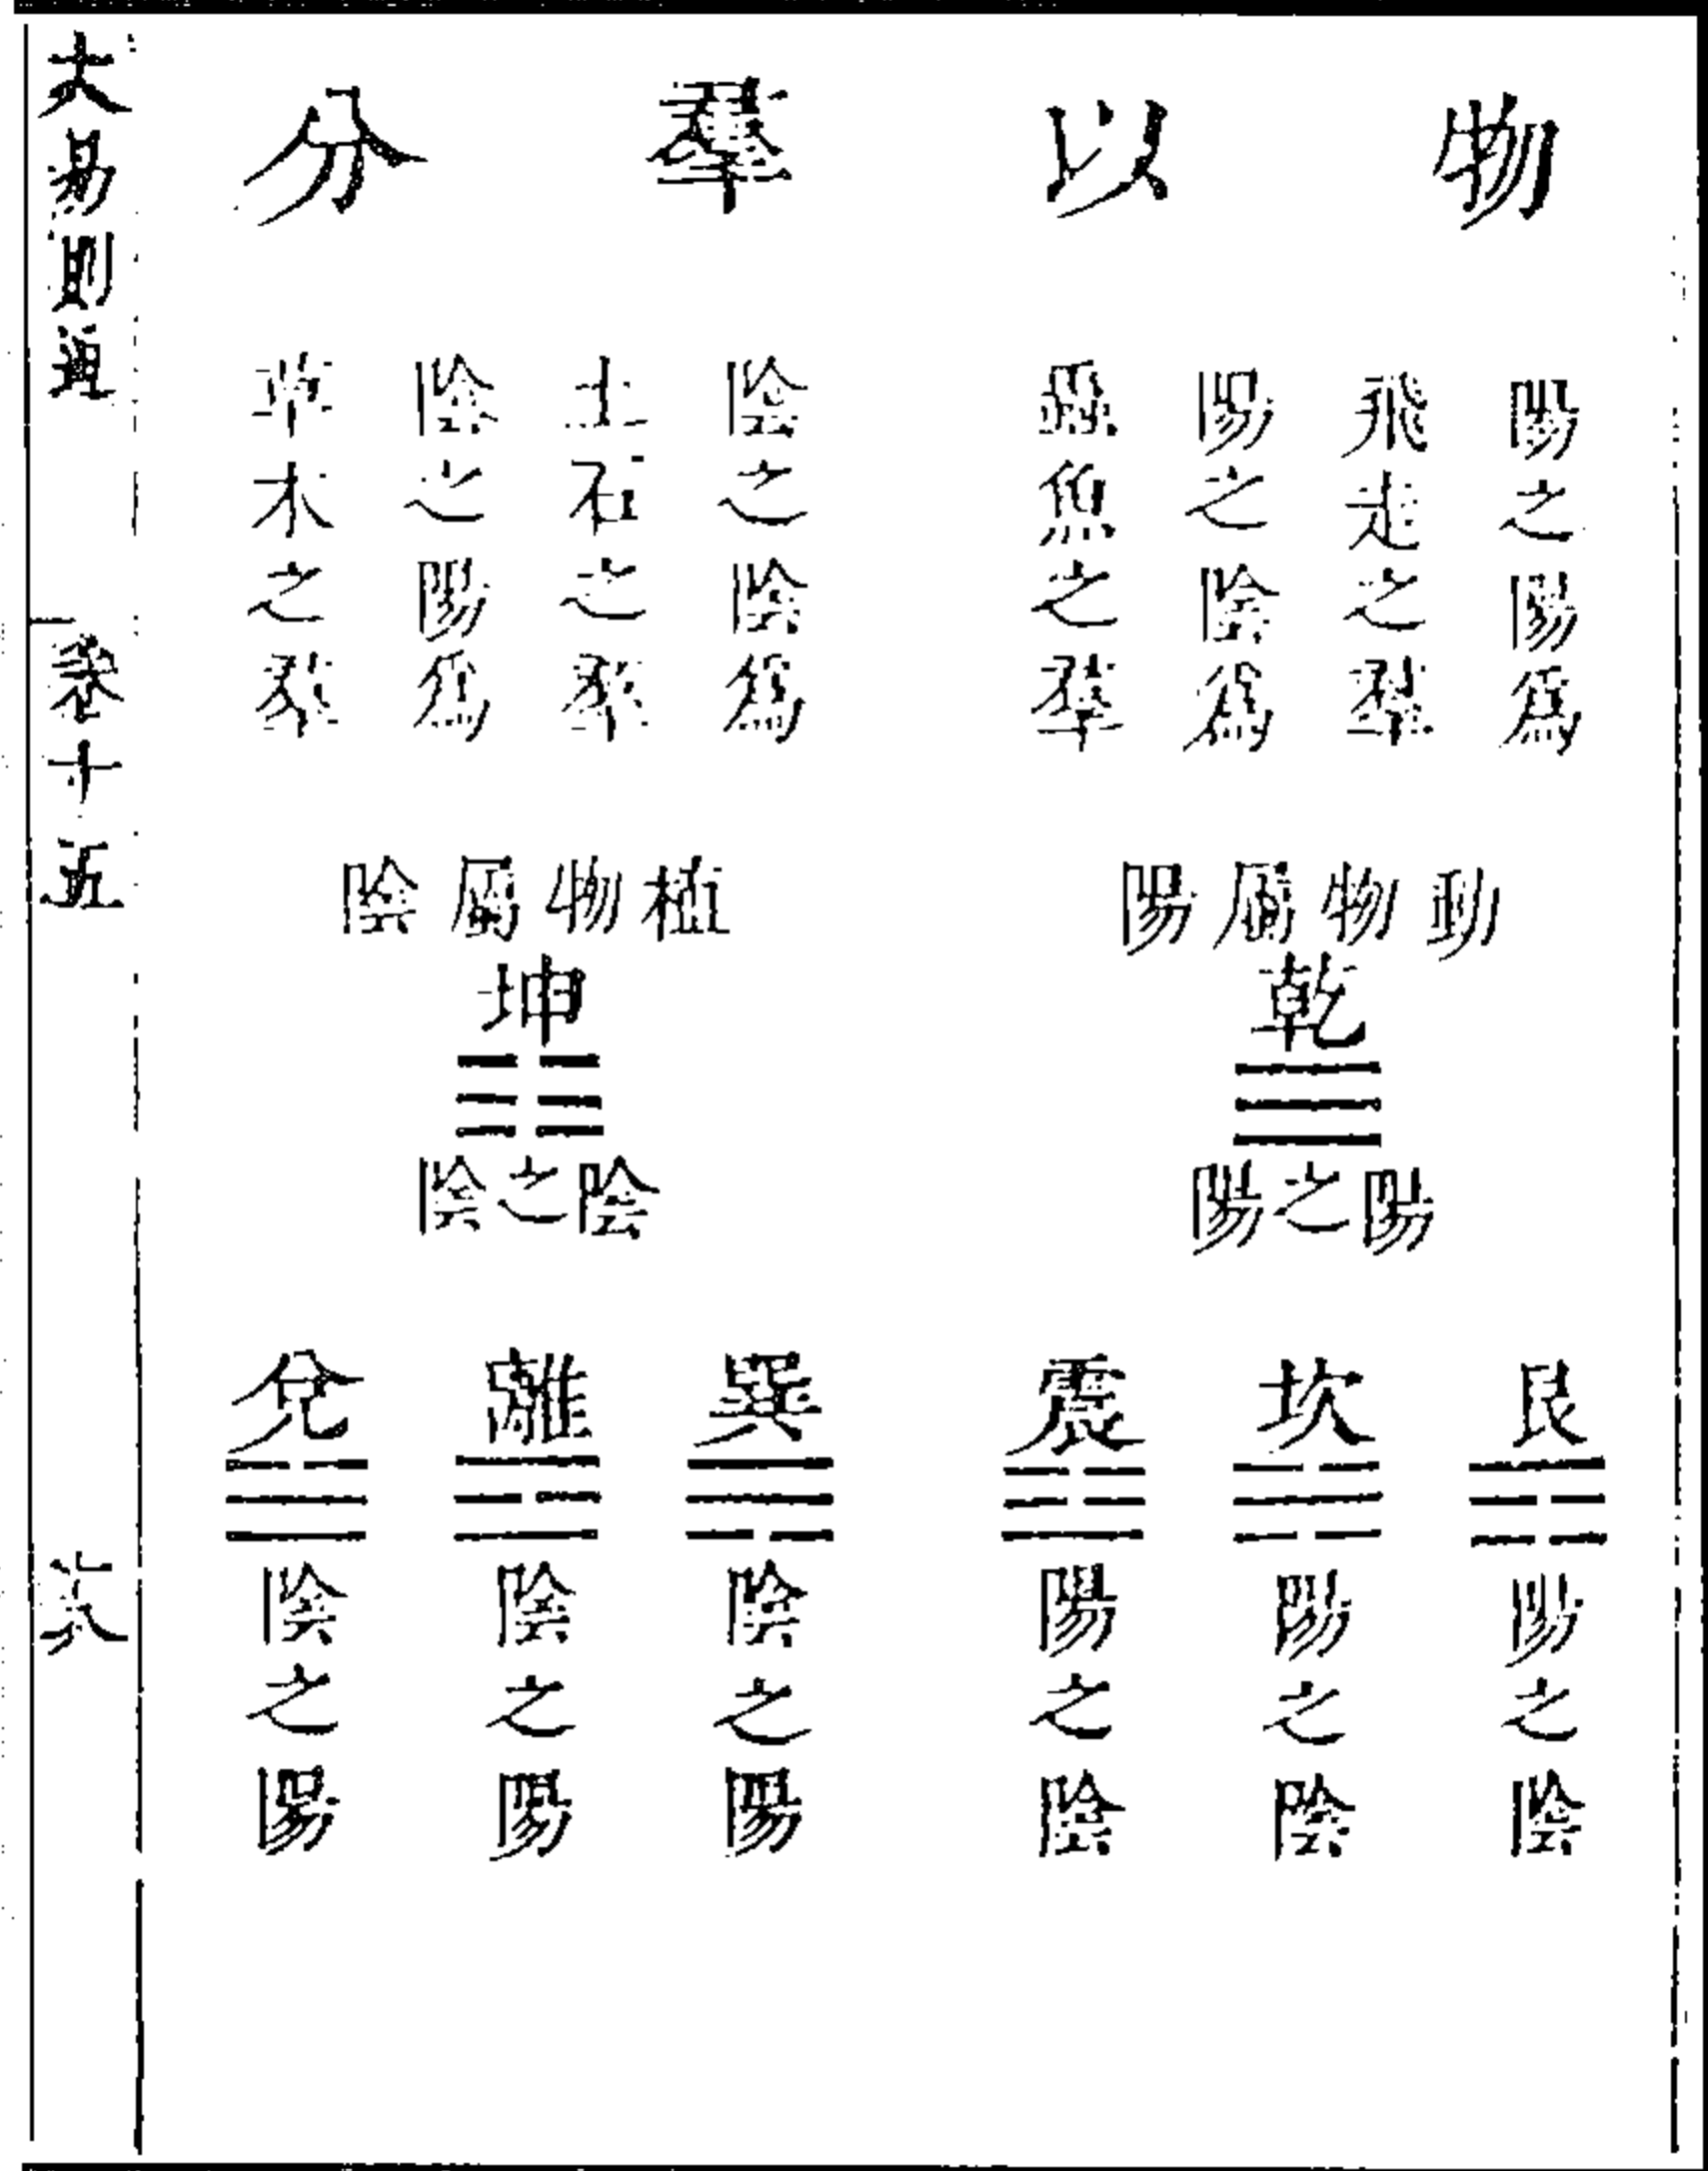 物以羣分
陽之陽爲
飛走之羣
陽之陰爲
魚之羣
陰之陰爲
土石之羣
陰之陽爲
草木之羣
動物屬陽
乾
陽之陽
植物屬陰
坤
陰之陰
艮
陽之陰
坎
陽之陰
震
陽之陰
巽
陰之陽
離
陰之陽
兌
陰之陽
大易則通
卷十五